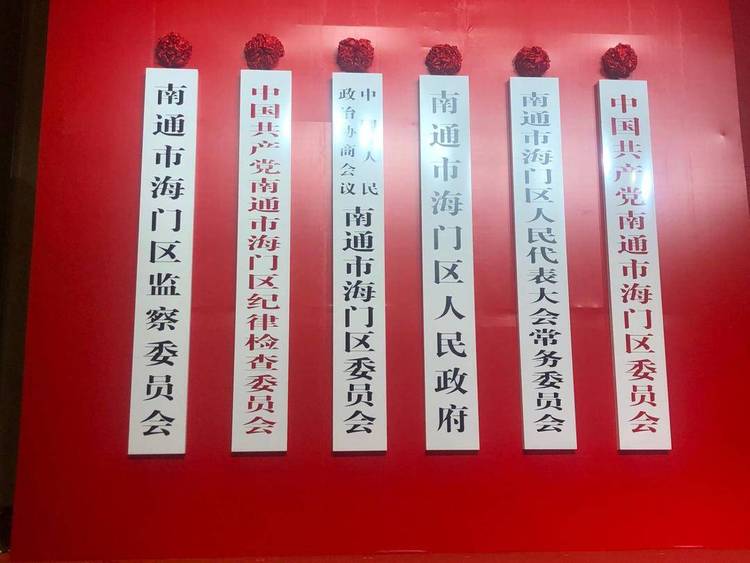 中国共产党南通市海门区委员会
南通市海门区人民代表大会常务委员会
南通市海门区人民政府
中国人民
政治协商会议
南通市海门区委员会
中国共产党南通市海门区纪律检查委员会
南通市海门区监察委员会